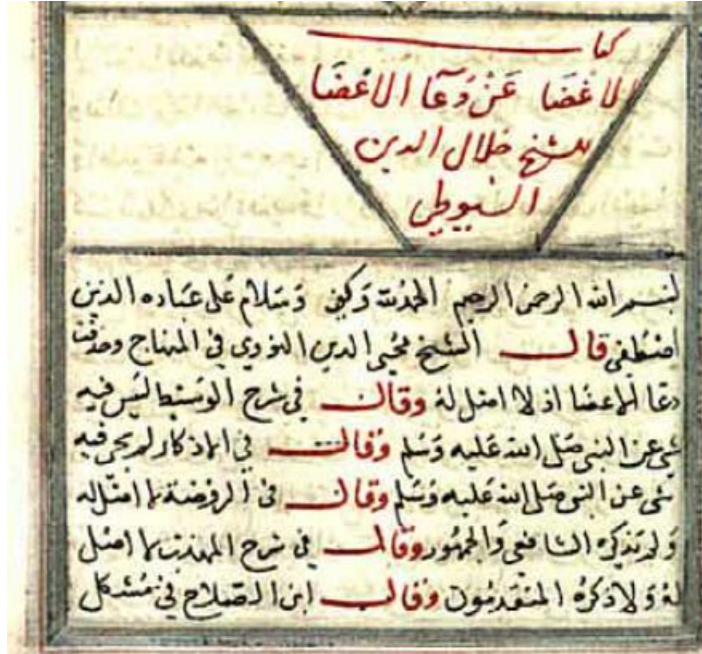 كتاب
الاغضا عن دعا الاعضا
للشيخ جلال الدين
السيوطي
بسم الله الرحمن الرحيم الحمد لله وكفى وسلام على عباده الذين
اصطفى قال الشيخ محيى الدين النووي في المنهاج وحذفت
دعا الاعضا اذ لا اصل له وقال في شرح الوسيط ليس فيه
شى عن النبى صلى الله عليه وسلم وقال في الاذكار لم يجى فيه
شى عن النبى صلى الله عليه وسلم وقال في الروضة لا اصل له
ولم يذكره الشافعي والجمهور وقال في شرح المهذب لا اصل
له ولا ذكره المتقدمون وقال ابن الصلاح في مشكل